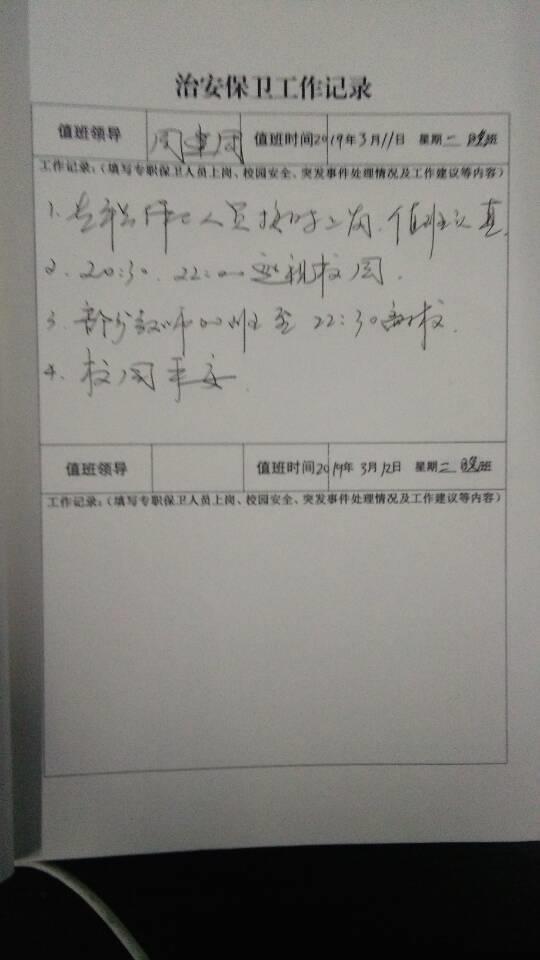 治安保卫工作记录
值班领导 周 值班时间2019年3月11日 星期二 晚班
工作记录：（填写专职保卫人员上岗、校园安全、突发事件处理情况及工作建议等内容）
1. 专职保卫人员按时上岗，值班认真
2. 20:30. 22:00 巡视校园.
3. 部分教师 至 22:30离校.
4. 校园平安
值班领导 值班时间2019年3月12日 星期二 晚班
工作记录：（填写专职保卫人员上岗、校园安全、突发事件处理情况及工作建议等内容）